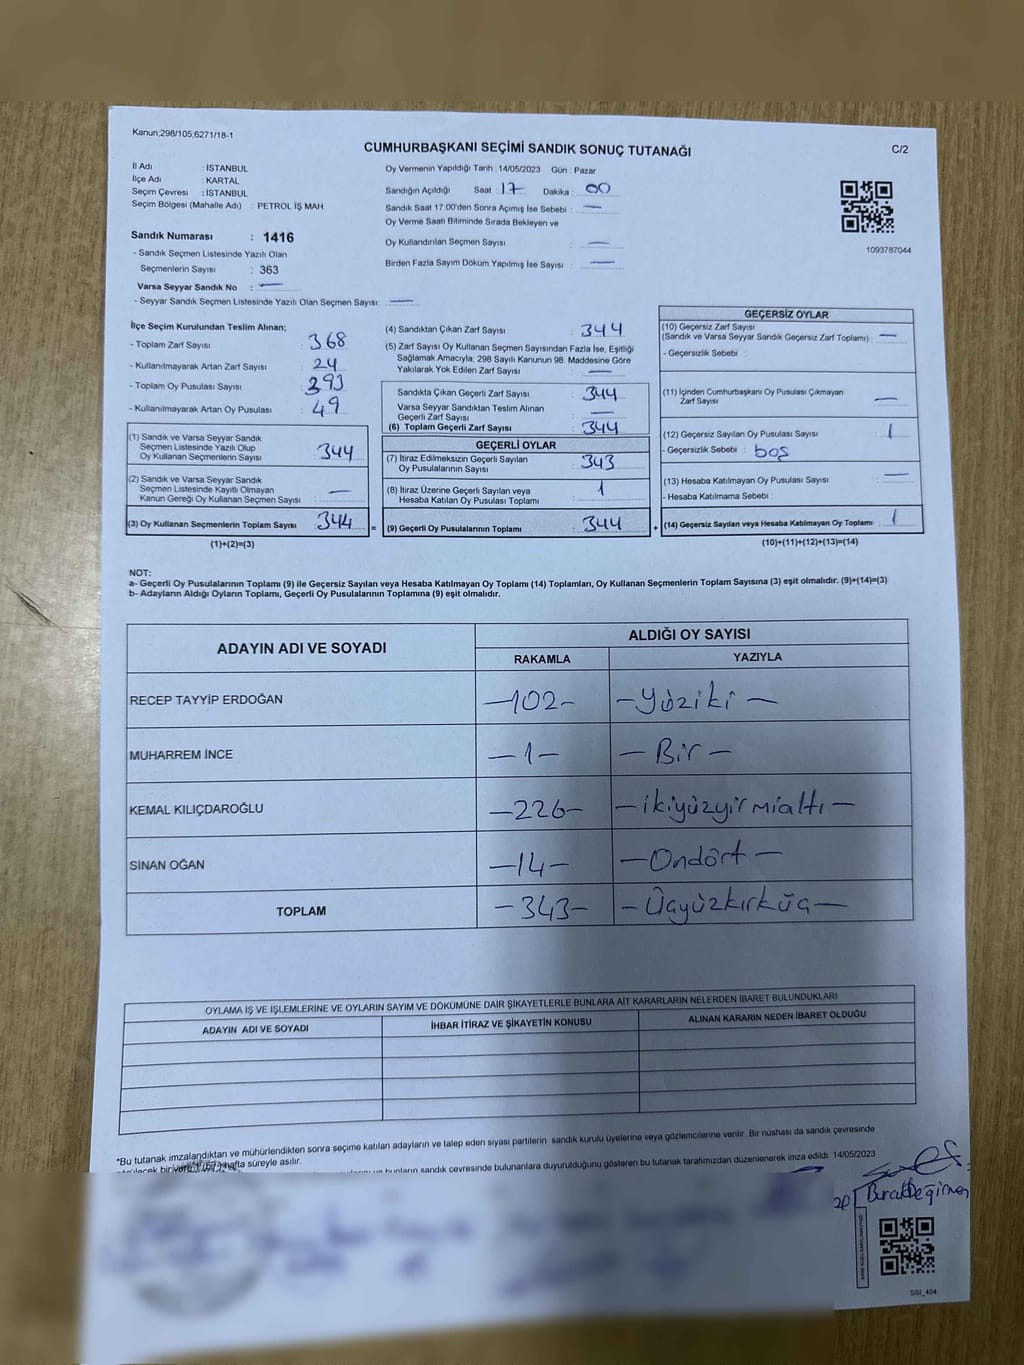 Kanun;298/105;6271/18-1
CUMHURBAŞKANI SEÇİMİ SANDIK SONUÇ TUTANAĞI
C/2
İl Adı : İSTANBUL
İlçe Adı : KARTAL
Seçim Çevresi : İSTANBUL
Seçim Bölgesi (Mahalle Adı) : PETROL İŞ MAH.
Oy Vermenin Yapıldığı Tarih : 14/05/2023 Gün : Pazar
Sandığın Açıldığı Saat : 17 Dakika : 00
Sandık Saat 17:00'den Sonra Açımış İse Sebebi : —
Oy Verme Saati Bitiminde Sırada Bekleyen ve
Oy Kullandırılan Seçmen Sayısı : —
Birden Fazla Sayım Döküm Yapılmış İse Sayısı : —
1093787044
Sandık Numarası : 1416
- Sandık Seçmen Listesinde Yazılı Olan
Seçmenlerin Sayısı : 363
Varsa Seyyar Sandık No : —
- Seyyar Sandık Seçmen Listesinde Yazılı Olan Seçmen Sayısı: —
İlçe Seçim Kurulundan Teslim Alınan;
- Toplam Zarf Sayısı : 368
- Kullanılmayarak Artan Zarf Sayısı : 24
- Toplam Oy Pusulası Sayısı : 393
- Kullanılmayarak Artan Oy Pusulası : 49
(1) Sandık ve Varsa Seyyar Sandık
Seçmen Listesinde Yazılı Olup
Oy Kullanan Seçmenlerin Sayısı : 344
(2) Sandık ve Varsa Seyyar Sandık
Seçmen Listesinde Kayıtlı Olmayan
Kanun Gereği Oy Kullanan Seçmen Sayısı : —
(3) Oy Kullanan Seçmenlerin Toplam Sayısı : 344 =
(1)+(2)=(3)
(4) Sandıktan Çıkan Zarf Sayısı : 344
(5) Zarf Sayısı Oy Kullanan Seçmen Sayısından Fazla İse, Eşitliği
Sağlamak Amacıyla; 298 Sayılı Kanunun 98. Maddesine Göre
Yakılarak Yok Edilen Zarf Sayısı : —
Sandıkta Çıkan Geçerli Zarf Sayısı : 344
Varsa Seyyar Sandıktan Teslim Alınan
Geçerli Zarf Sayısı : —
(6) Toplam Geçerli Zarf Sayısı : 344
GEÇERLİ OYLAR
(7) İtiraz Edilmeksizin Geçerli Sayılan
Oy Pusulalarının Sayısı : 343
(8) İtiraz Üzerine Geçerli Sayılan veya
Hesaba Katılan Oy Pusulası Toplamı : 1
(9) Geçerli Oy Pusulalarının Toplamı : 344 +
GEÇERSİZ OYLAR
(10) Geçersiz Zarf Sayısı
(Sandık ve Varsa Seyyar Sandık Geçersiz Zarf Toplamı) : —
- Geçersizlik Sebebi :
(11) İçinden Cumhurbaşkanı Oy Pusulası Çıkmayan
Zarf Sayısı : —
(12) Geçersiz Sayılan Oy Pusulası Sayısı : 1
- Geçersizlik Sebebi : boş
(13) Hesaba Katılmayan Oy Pusulası Sayısı : —
- Hesaba Katılmama Sebebi :
(14) Geçersiz Sayılan veya Hesaba Katılmayan Oy Toplamı : 1
(10)+(11)+(12)+(13)=(14)
NOT:
a- Geçerli Oy Pusulalarının Toplamı (9) ile Geçersiz Sayılan veya Hesaba Katılmayan Oy Toplamı (14) Toplamları, Oy Kullanan Seçmenlerin Toplam Sayısına (3) eşit olmalıdır. (9)+(14)=(3)
b- Adayların Aldığı Oyların Toplamı, Geçerli Oy Pusulalarının Toplamına (9) eşit olmalıdır.
ADAYIN ADI VE SOYADI
ALDIĞI OY SAYISI
RAKAMLA YAZIYLA
RECEP TAYYİP ERDOĞAN —102— —Yüziki—
MUHARREM İNCE —1— —Bir—
KEMAL KILIÇDAROĞLU —226— —ikiyüzyirmialtı—
SİNAN OĞAN —14— —Ondört—
TOPLAM —343— —Üçyüzkırküç—
OYLAMA İŞ VE İŞLEMLERİNE VE OYLARIN SAYIM VE DÖKÜMÜNE DAİR ŞİKAYETLERLE BUNLARA AİT KARARLARIN NELERDEN İBARET BULUNDUKLARI
ADAYIN ADI VE SOYADI İHBAR İTİRAZ VE ŞİKAYETİN KONUSU ALINAN KARARIN NEDEN İBARET OLDUĞU
*Bu tutanak imzalandıktan ve mühürlendikten sonra seçime katılan adayların ve talep eden siyasi partilerin sandık kurulu üyelerine veya gözlemcilerine verilir. Bir nüshası da sandık çevresinde
hafta süreyle asılır.
bunların sandık çevresinde bulunanlara duyurulduğunu gösteren bu tutanak tarafımızdan düzenlenerek imza edildi. 14/05/2023
Burak Değirmen
SSI_404